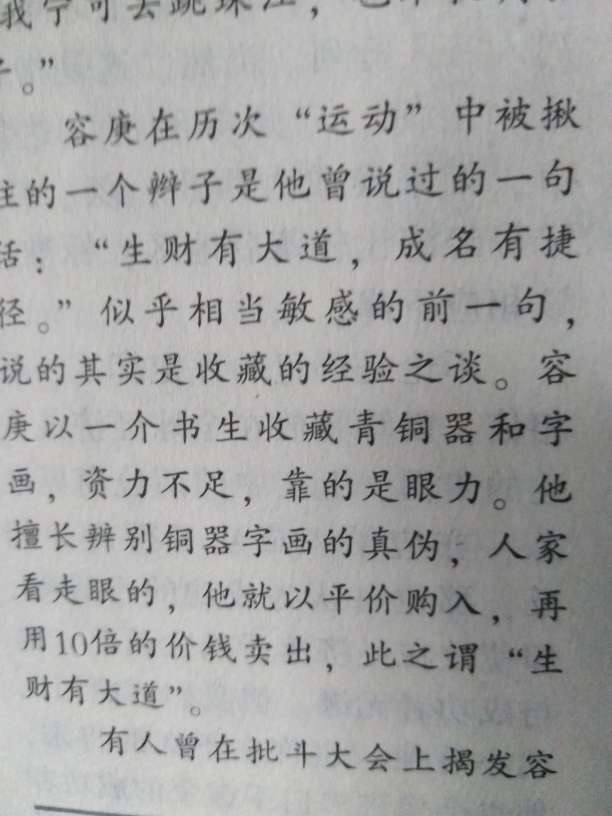 我宁可去跳珠江，
子。”
容庚在历次“运动”中被揪
住的一个辫子是他曾说过的一句
话：“生财有大道，成名有捷
径。”似乎相当敏感的前一句，
说的其实是收藏的经验之谈。容
庚以一介书生收藏青铜器和字
画，资力不足，靠的是眼力。他
擅长辨别铜器字画的真伪，人家
看走眼的，他就以平价购入，再
用10倍的价钱卖出，此之谓“生
财有大道”。
有人曾在批斗大会上揭发容